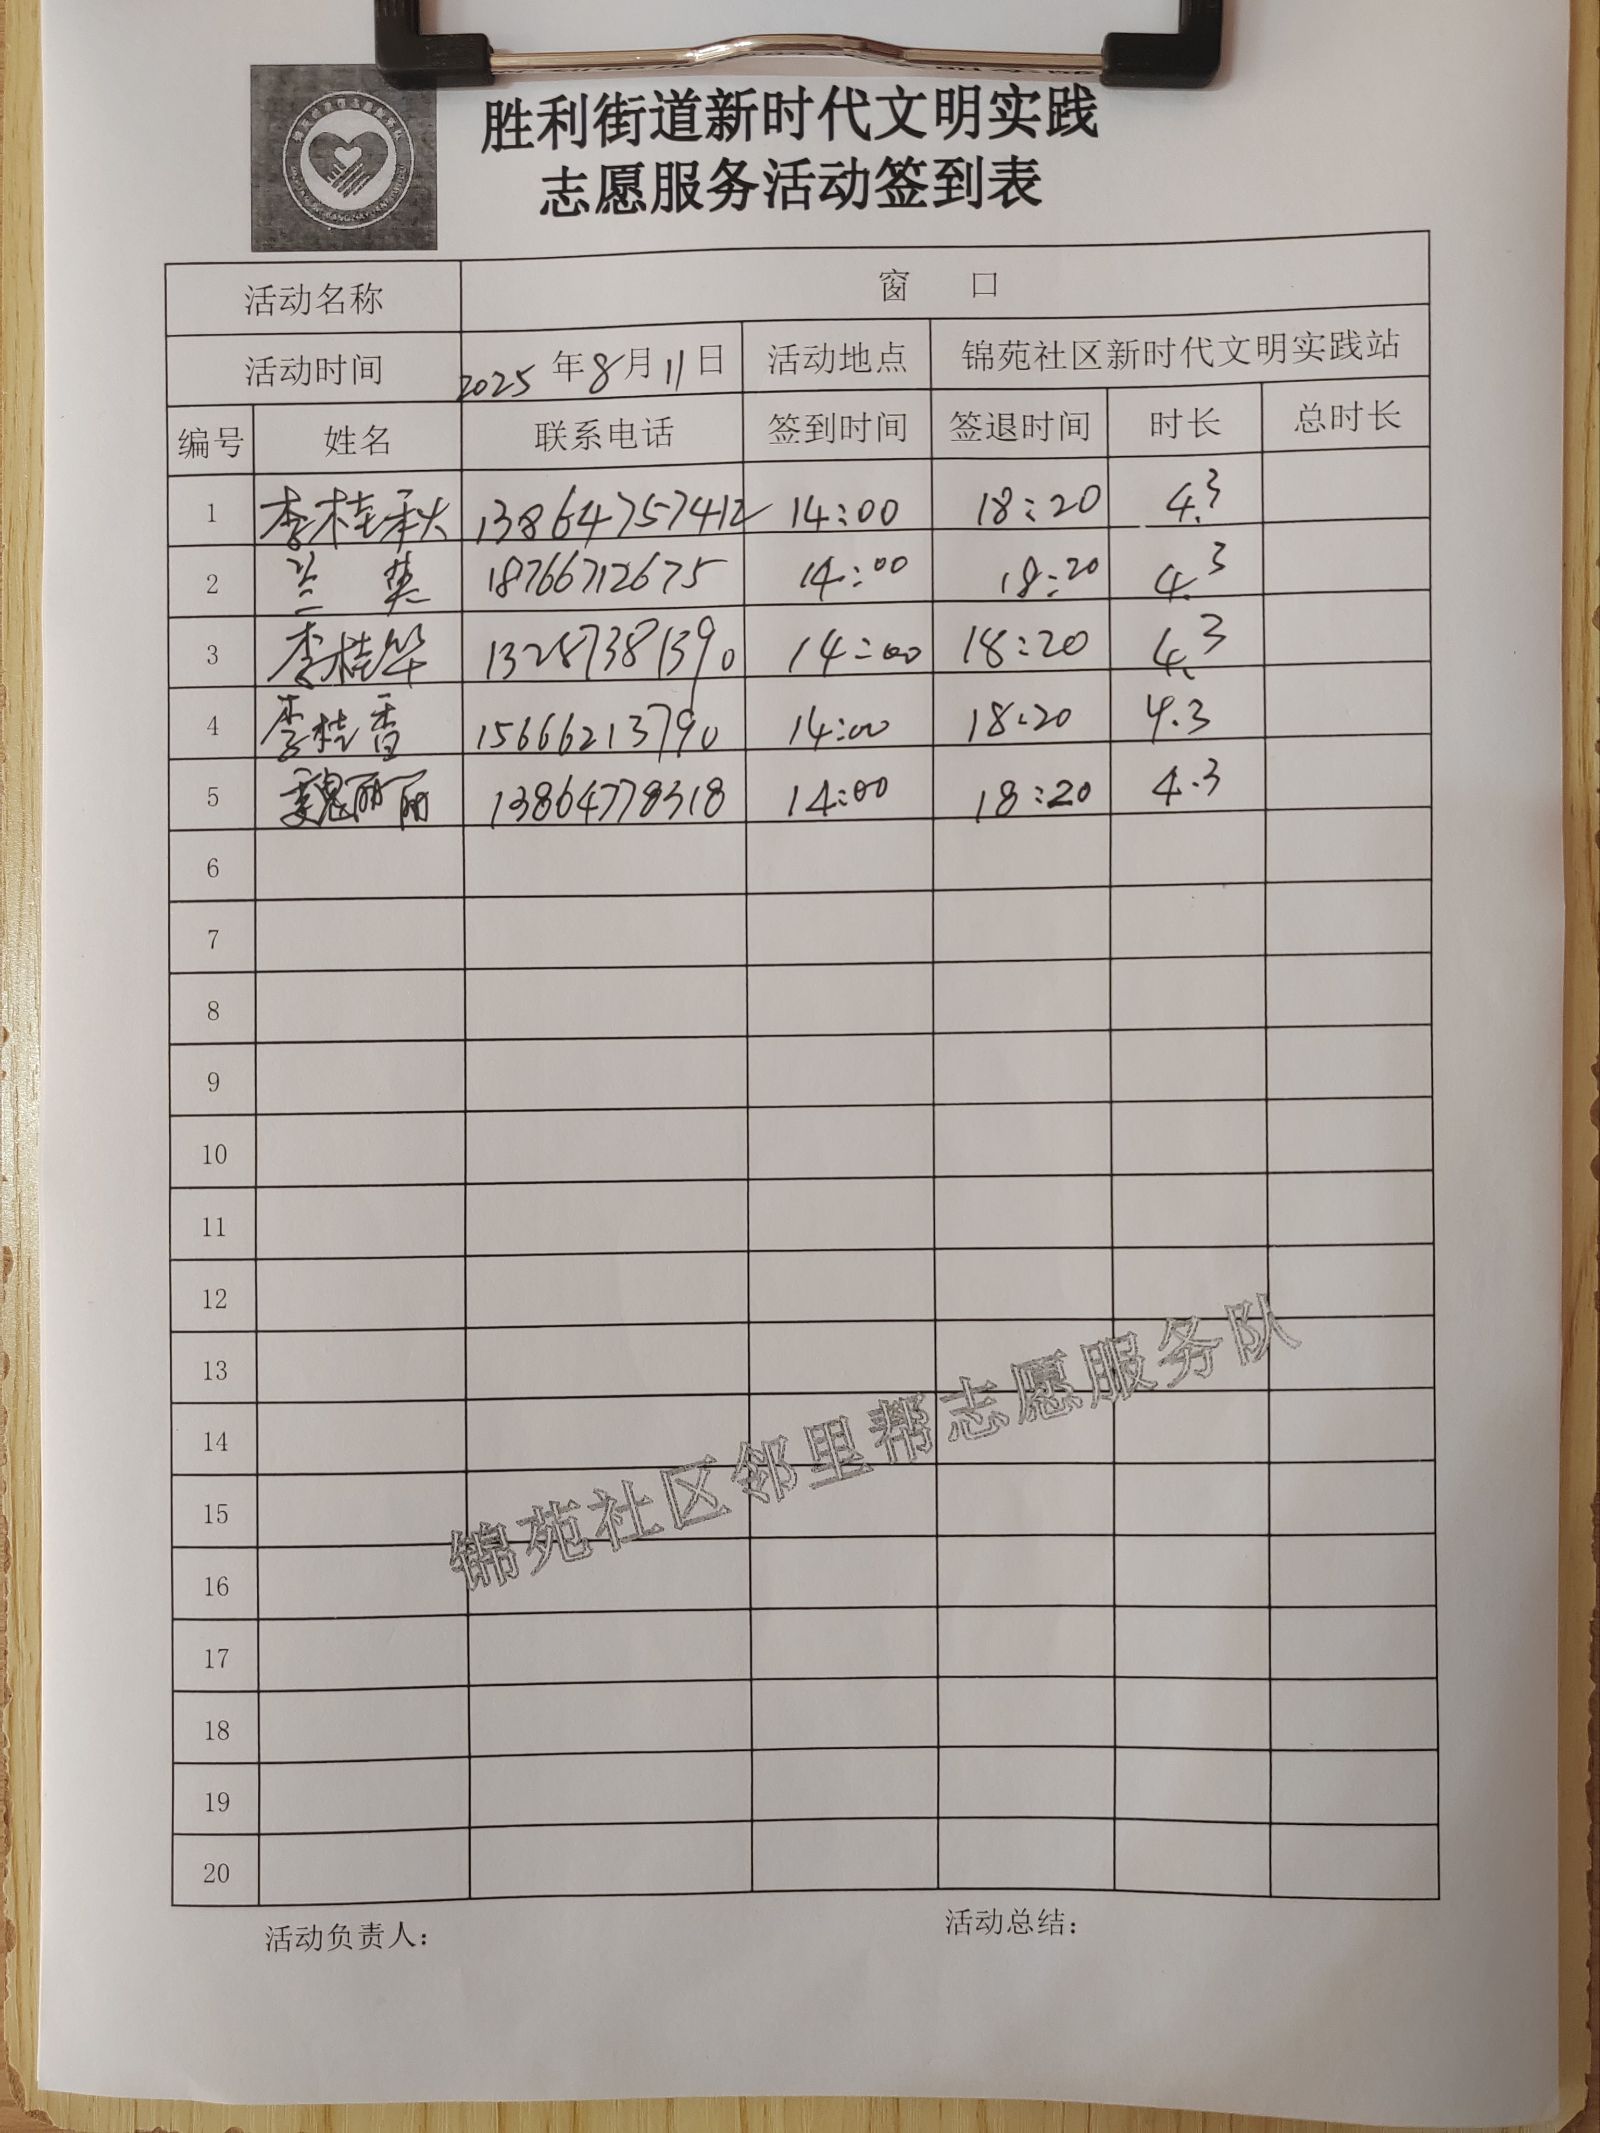 胜利街道新时代文明实践
志愿服务活动签到表
活动名称 窗 口
活动时间 2025年8月11日 活动地点 锦苑社区新时代文明实践站
编号 姓名 联系电话 签到时间 签退时间 时长 总时长
1 李桂秋 13864757412 14:00 18:20 4.3
2 兰英 18766712675 14:00 18:20 4.3
3 李桂华 13287381390 14:00 18:20 4.3
4 李桂香 15666213790 14:00 18:20 4.3
5 魏丽丽 13864778318 14:00 18:20 4.3
6
7
8
9
10
11
12
13
14
15
16
17
18
19
20
锦苑社区邻里帮志愿服务队
活动负责人： 活动总结：